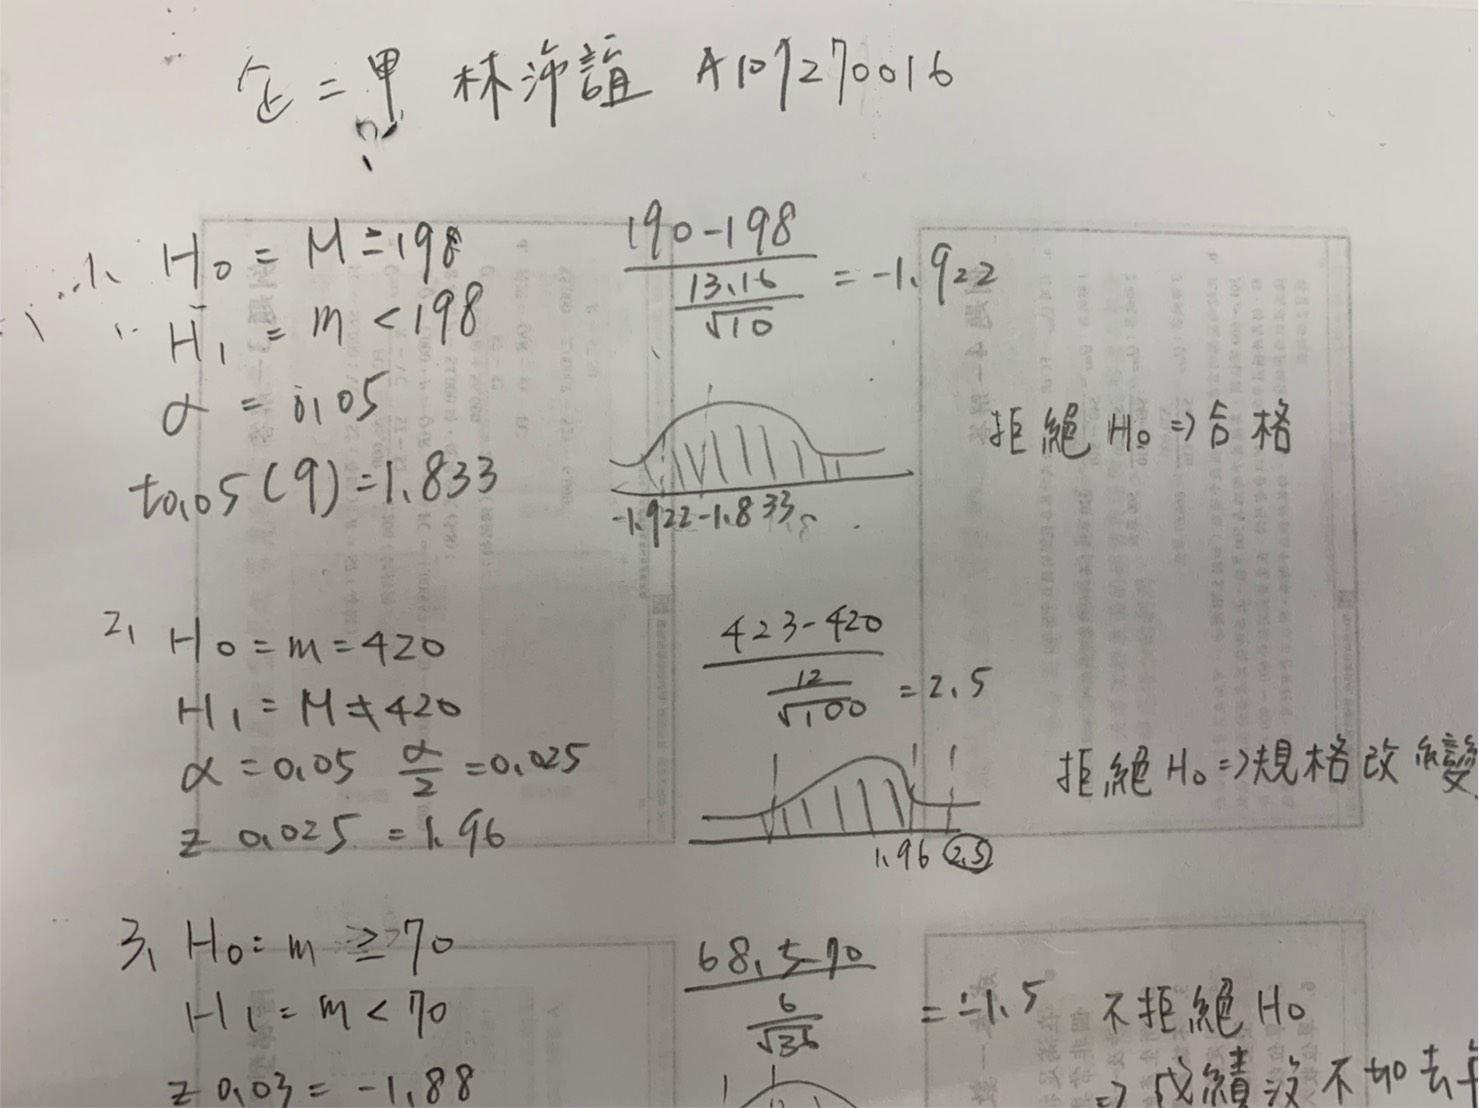 企二甲 林沛誼 A109270016
1、 H0 = M ≥ 198
H1 = m < 198
α = 0.05
t0.05(9) = 1.833
190-198
13.16
√10
= -1.922
-1.922 -1.833
拒絕 H0 => 合格
2、 H0 = m = 420
H1 = M ≠ 420
α = 0.05 α/2 = 0.025
z 0.025 = 1.96
423-420
12
√100
= 2.5
1.96 2.5
拒絕 H0 => 規格改變
3、 H0 = m ≥ 70
H1 = m < 70
z 0.03 = -1.88
68.5-70
6
√36
= -1.5 不拒絕 H0
=> 成績沒不如去年